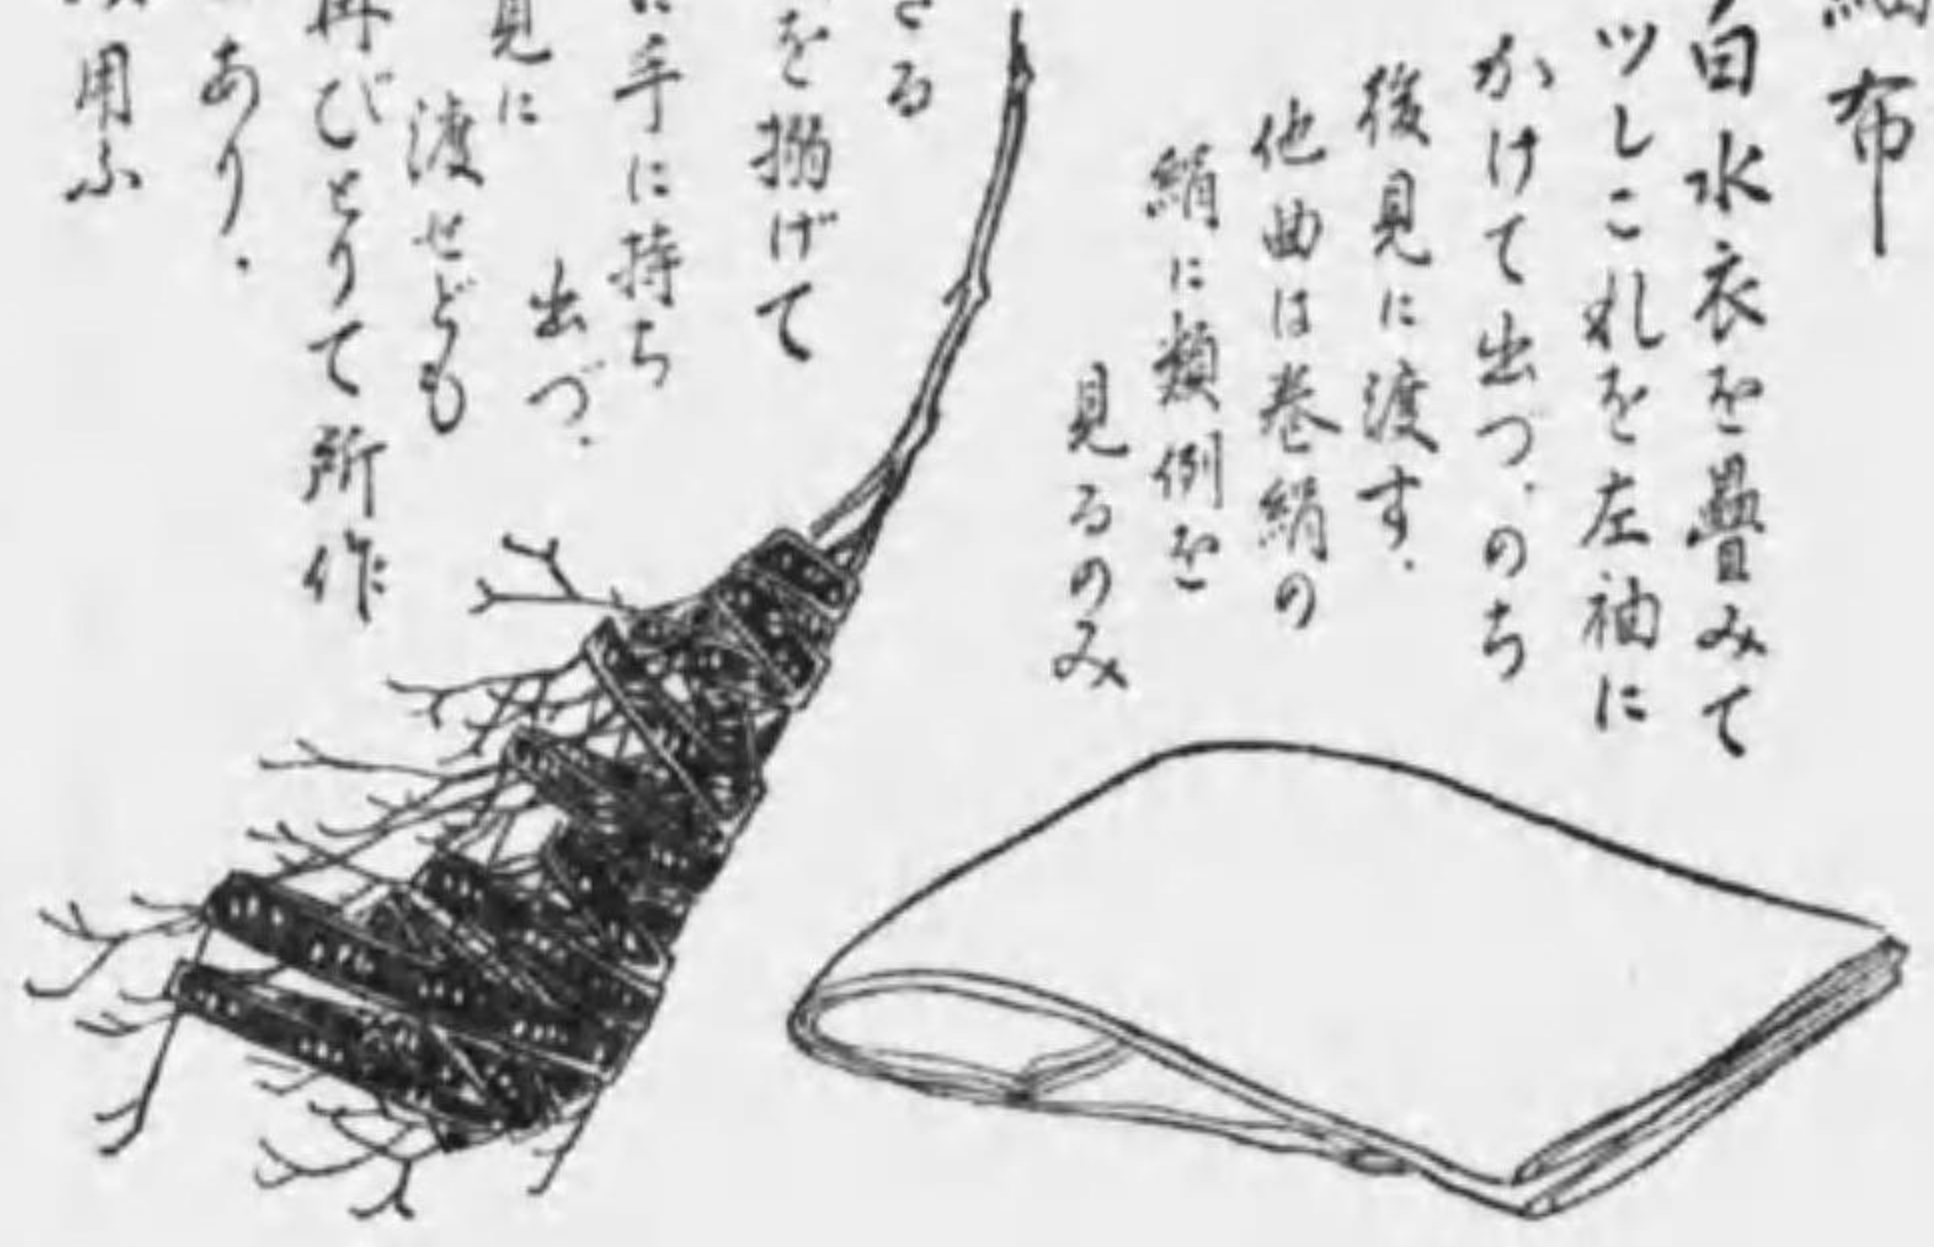 細布
白水衣を疊みて
ツしこれを左袖に
かけて出づ、のち
後見に渡す.
他曲は巻絹の
絹に類例を
見るのみ
さる
を搦げて
に手に持ち
出づ.
見に
渡せども
再びとりて所作
あり.
用ふ